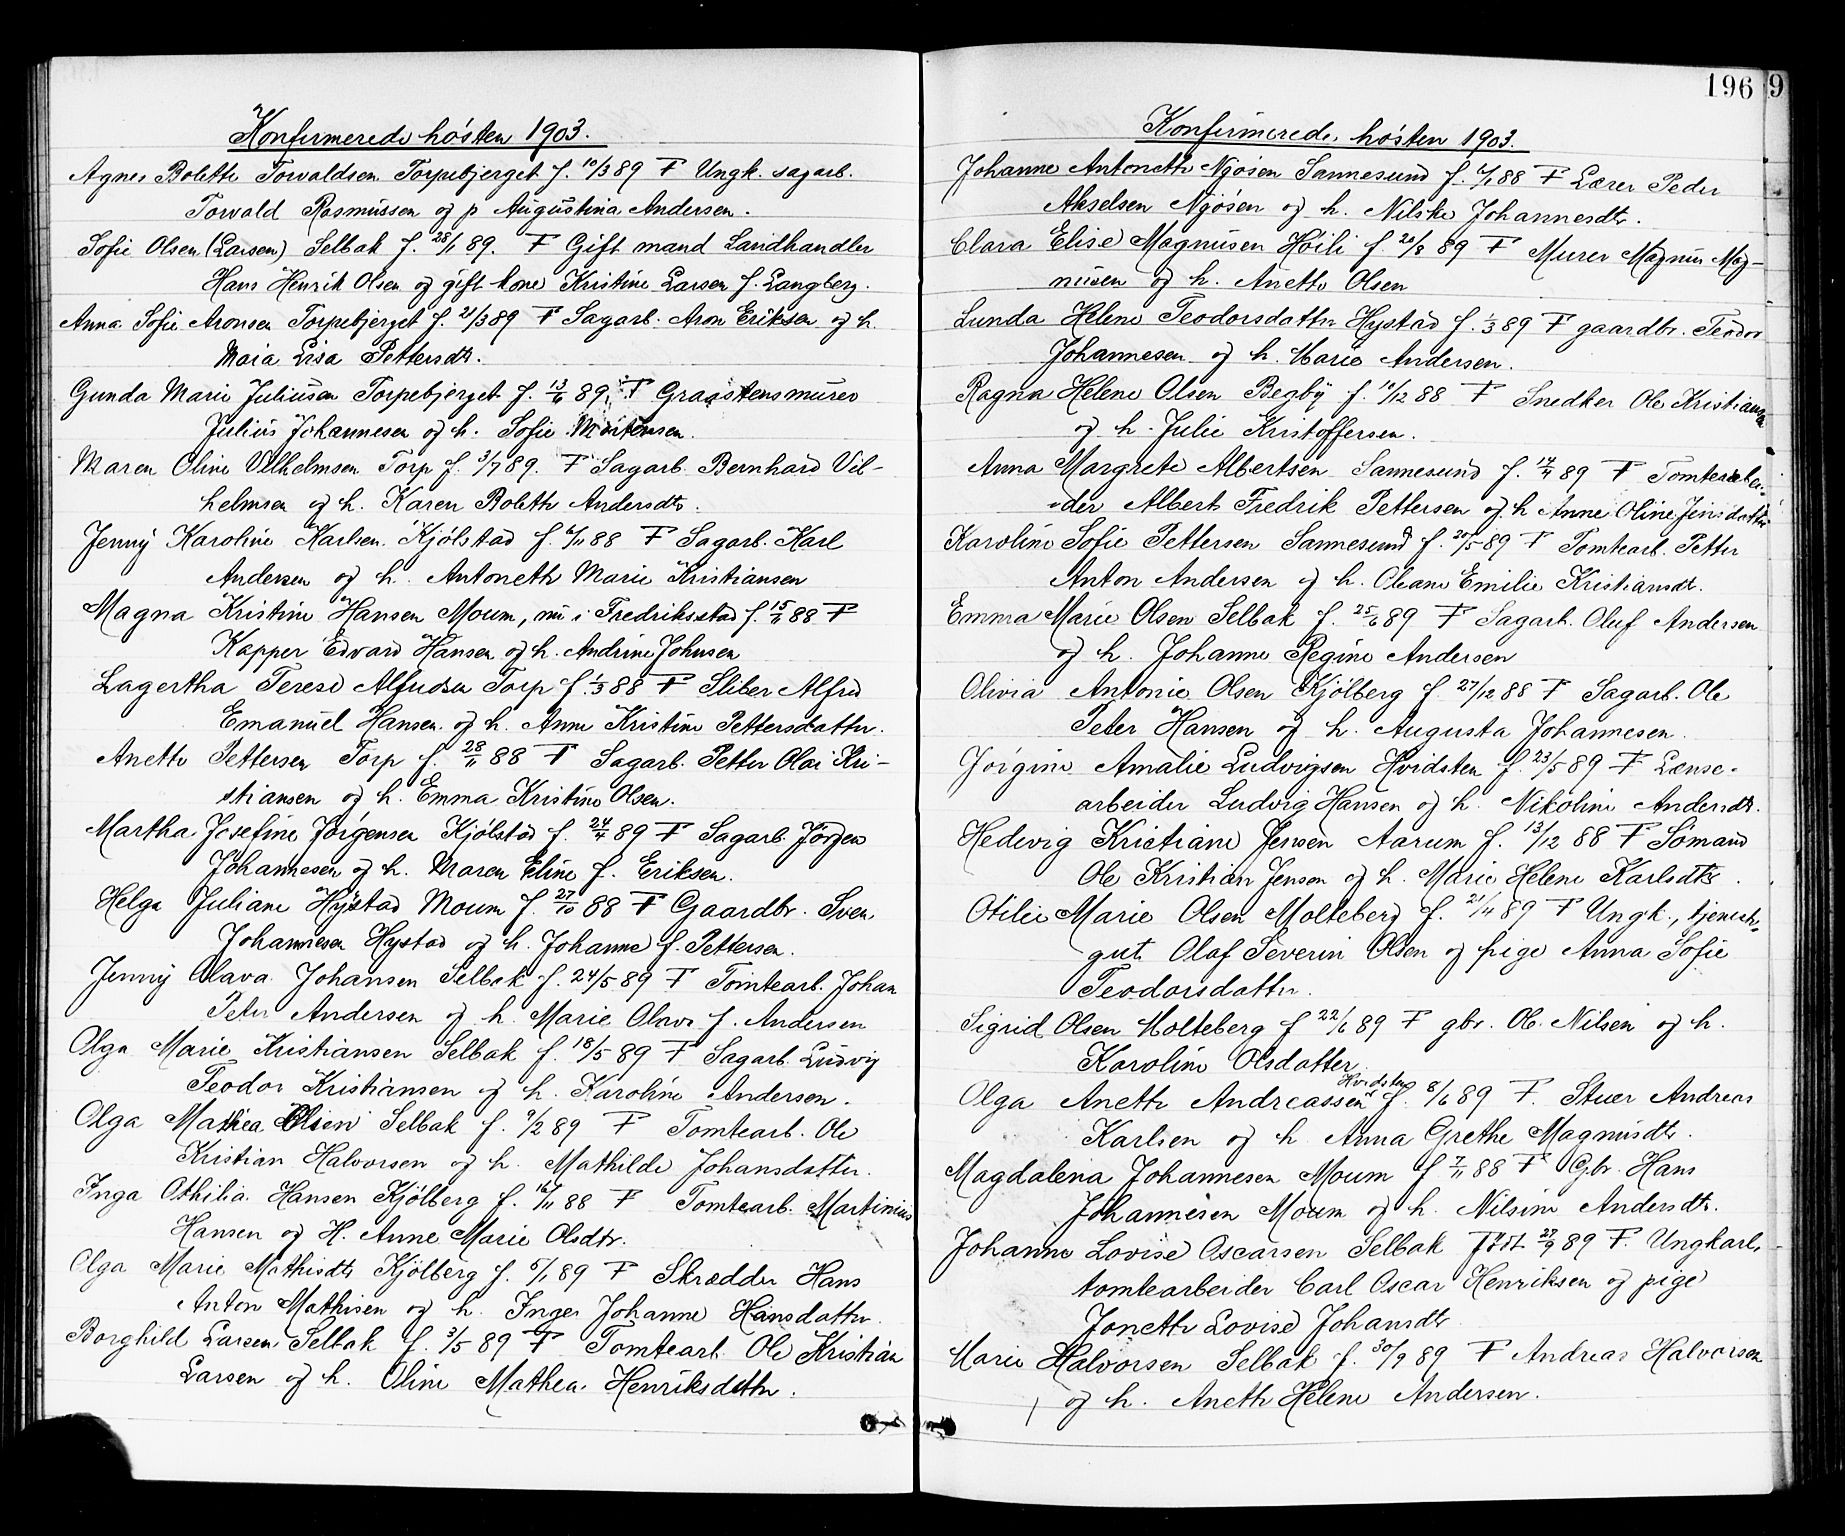 Konfirmerede hösten 1903.
Agnes Bolette Torvaldsen Torpebjerget f. 10/3 89 F Ungk. sagarb.
Torvald Rasmussen og p Augustina Andersen.
Sofie Olsen (Larsen) Selbak f. 28/1 89. F Gift mand Landhandler
Hans Henrik Olsen og gift kone Kristine Larsen f. Langberg.
Anna Sofie Aronsen Torpebjerget f. 21/3 89 F Sagarb. Aron Eriksen og h.
Maia Lisa Pettersdtr.
Gunda Marie Juliusen Torpebjerget f. 13/6 89. F Graastensmurer
Julius Johannesen og h. Sofie Mortensen.
Maren Oline Vilhelmsen Torp f. 3/7 89. F Sagarb. Bernhard Vil-
helmsen og h. Karen Bolette Andersdtr.
Jenny Karoline Karlsen Kjölstad f. 6/11 88 F Sagarb. Karl
Andersen og h. Antonette Marie Kristiansen
Magna Kristine Hansen Moum, nu i Fredriksstad f. 15/11 88 F
Kapper Edvard Hansen og h. Andrine Johnsen
Lagertha Terese Alfredsen Torp f. 1/3 88 F Sliber Alfred
Emanuel Hansen og h. Anne Kristine Pettersdatter.
Anette Pettersen Torp f. 28/11 88 F Sagarb. Petter Olai Kri-
stiansen og h. Emma Kristine Olsen.
Martha Josefine Jörgensen Kjölstad f. 24/4 89 F Sagarb. Jörgen
Johannesen og h. Maren Eline f. Eriksen.
Helga Juliane Hystad Moum f. 27/10 88 F Gaardbr. Sven
Johannesen Hystad og h. Johanne f. Pettersen.
Jenny Olava Johansen Selbak f. 24/5 89 F Tomtearb. Johan
Peter Andersen og h. Marie Olava f. Andersen
Olga Marie Kristiansen Selbak f. 18/5 89 F Sagarb. Ludvig
Teodor Kristiansen og h. Karoline Andersen.
Olga Mathea Olsen Selbak f. 9/2 89 F Tomtearb. Ole
Kristian Halvorsen og h. Mathilde Johansdatter.
Inga Othilia Hansen Kjölberg f. 16/11 88 F Tomtearb. Martinius
Hansen og H. Anne Marie Olsdtr.
Olga Marie Mathisdtr Kjölberg f. 5/1 89 F Skrædder Hans
Anton Mathisen og h. Inger Johanne Hansdatter.
Borghild Larsen Selbak f. 3/5 89 F Tomtearb. Ole Kristian
Larsen og h. Oline Mathea Henriksdatter.
196 9
Konfirmerede hösten 1903.
Johanne Antonette Nyösen Sannesund f. 88 F Lærer Peder
Akselsen Nyösen og h. Nilske Johannesdtr.
Clara Elise Magnusen Höili f. 20/8 89 F Murer Magnus Mag-
nusen og h. Anette Olsen
Lunda Helene Teodorsdatter Hystad f. 1/3 89 F gaardbr. Teodor
Johannesen og h. Marie Andersen.
Ragna Helene Olsen Begby f. 10/12 88 F Snedker Ole Kristiansen
og h. Julie Kristoffersen.
Anna Margrete Albertsen Sannesund f. 89 F Tomtearbei-
der Albert Fredrik Pettersen og h Anne Oline Jensdatter
Karoline Sofie Pettersen Sannesund f. 20/5 89 F Tomtearb. Petter
Anton Andersen og h. Oleane Emilie Kristiansdtr.
Emma Marie Olsen Selbak f. 25/6 89 F Sagarb. Oluf Andersen
og h. Johanne Regine Andersen
Olivia Antonie Olsen Kjölberg f. 27/12 88 F Sagarb. Ole
Peter Hansen og h. Augusta Johannesen.
Jörgine Amalie Ludvigsen Hvidsten f. 23/5 89 F Lænse-
arbeider Ludvig Hansen og h. Nikoline Andersdtr.
Hedevig Kristiane Jensen Aarum f. 13/12 88 F Sömand
Ole Kristian Jensen og h. Marie Helene Karlsdtr.
Otilie Marie Olsen Molteberg f. 21/4 89 F Ungk., tjeneste-
gut Olaf Severin Olsen og pige Anna Sofie
Teodorsdatter.
Sigrid Olsen Molteberg f 22/6 89 F gbr. Ole Nilsen og h.
Karoline Olsdatter
Hvidsten
Olga Anette Andreassen f. 8/6 89 F. Stuer Andreas
Karlsen og h. Anna Grethe Magnusdtr.
Magdalena Johannesen Moum f 7/11 88 F Gbr. Hans
Johannesen Moum og h. Nilsine Andersdtr.
Johanne Lovise Oscarsen Selbak född 27/9 89 F. Ungkarl,
tomtearbeider Carl Oscar Henriksen og pige
Jonette Lovise Johansdtr
Marie Halvorsen Selbak f. 30/9 89 F Andreas Halvorsen
og h. Anette Helene Andersen.